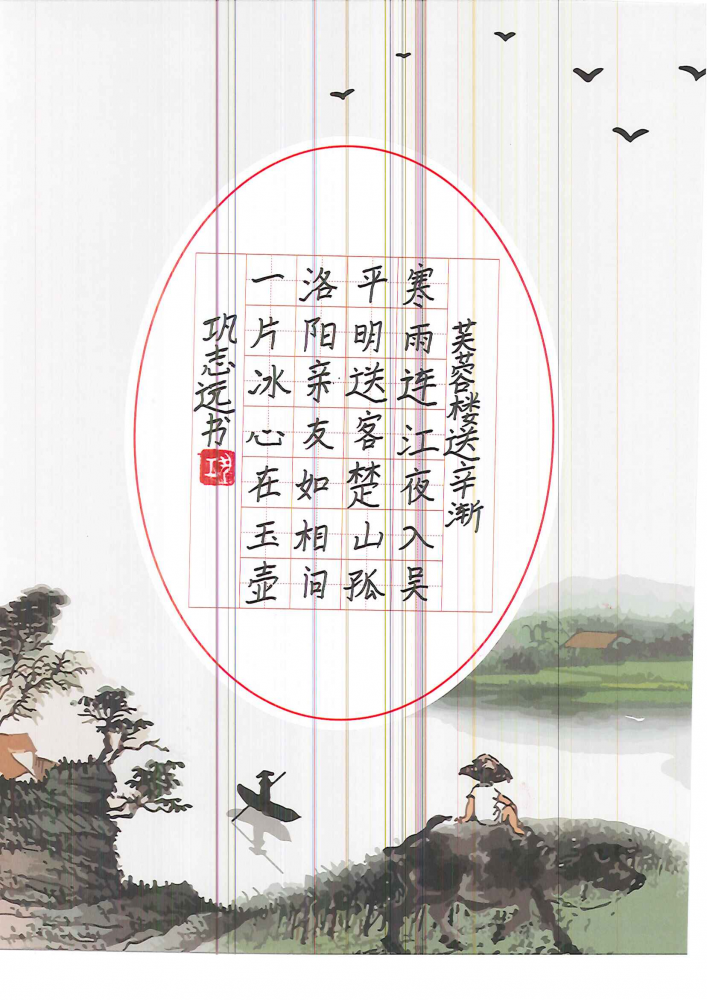 芙蓉楼送辛渐
寒雨连江夜入吴
平明送客楚山孤
洛阳亲友如相问
一片冰心在玉壶
巩志远书
巩